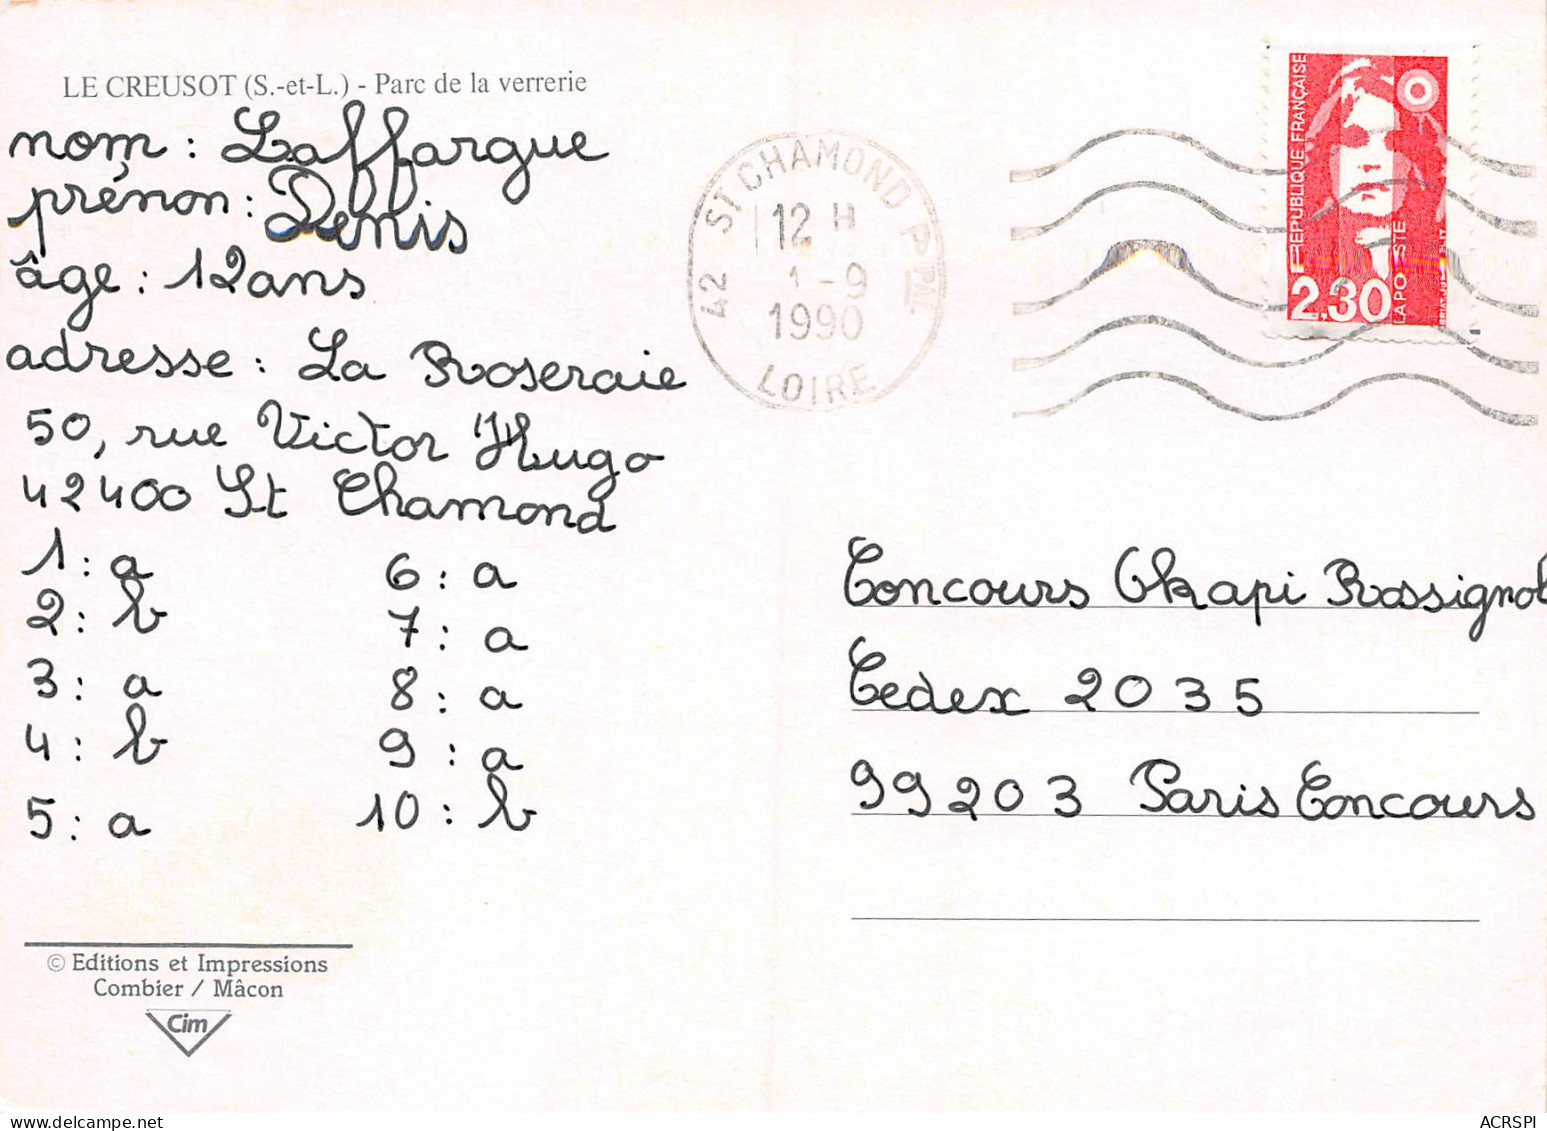 LE CREUSOT (S.-et-L.) - Parc de la verrerie
nom : Laffargue
prénon : Denis
âge : 12 ans
adresse : La Roseraie
50, rue Victor Hugo
42400 St Chamond
1 : a
2 : b
3 : a
4 : b
5 : a
6 : a
7 : a
8 : a
9 : a
10 : b
© Editions et Impressions
Combier / Mâcon
Cim
42 ST CHAMOND P PAL
12 H
1 - 9
1990
LOIRE
RÉPUBLIQUE FRANÇAISE
2,30
LA POSTE
Concours Okapi Rossignol
Cedex 2035
99203 Paris Concours
ACRSPI